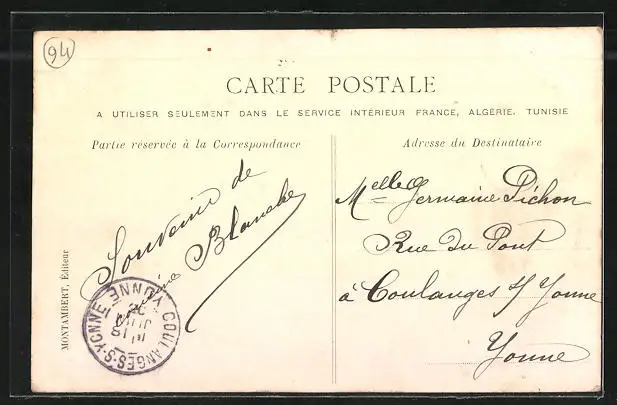 94
CARTE POSTALE
A UTILISER SEULEMENT DANS LE SERVICE INTERIEUR FRANCE, ALGERIE, TUNISIE
Partie réservée à la Correspondance
Adresse du Destinataire
Souvenir de
Blanche
Melle Germaine Pichon
Rue du Pont
à Coulanges s/ Yonne
Yonne
MONTAMBERT, Éditeur
COULANGES-S-YONNE YONNE